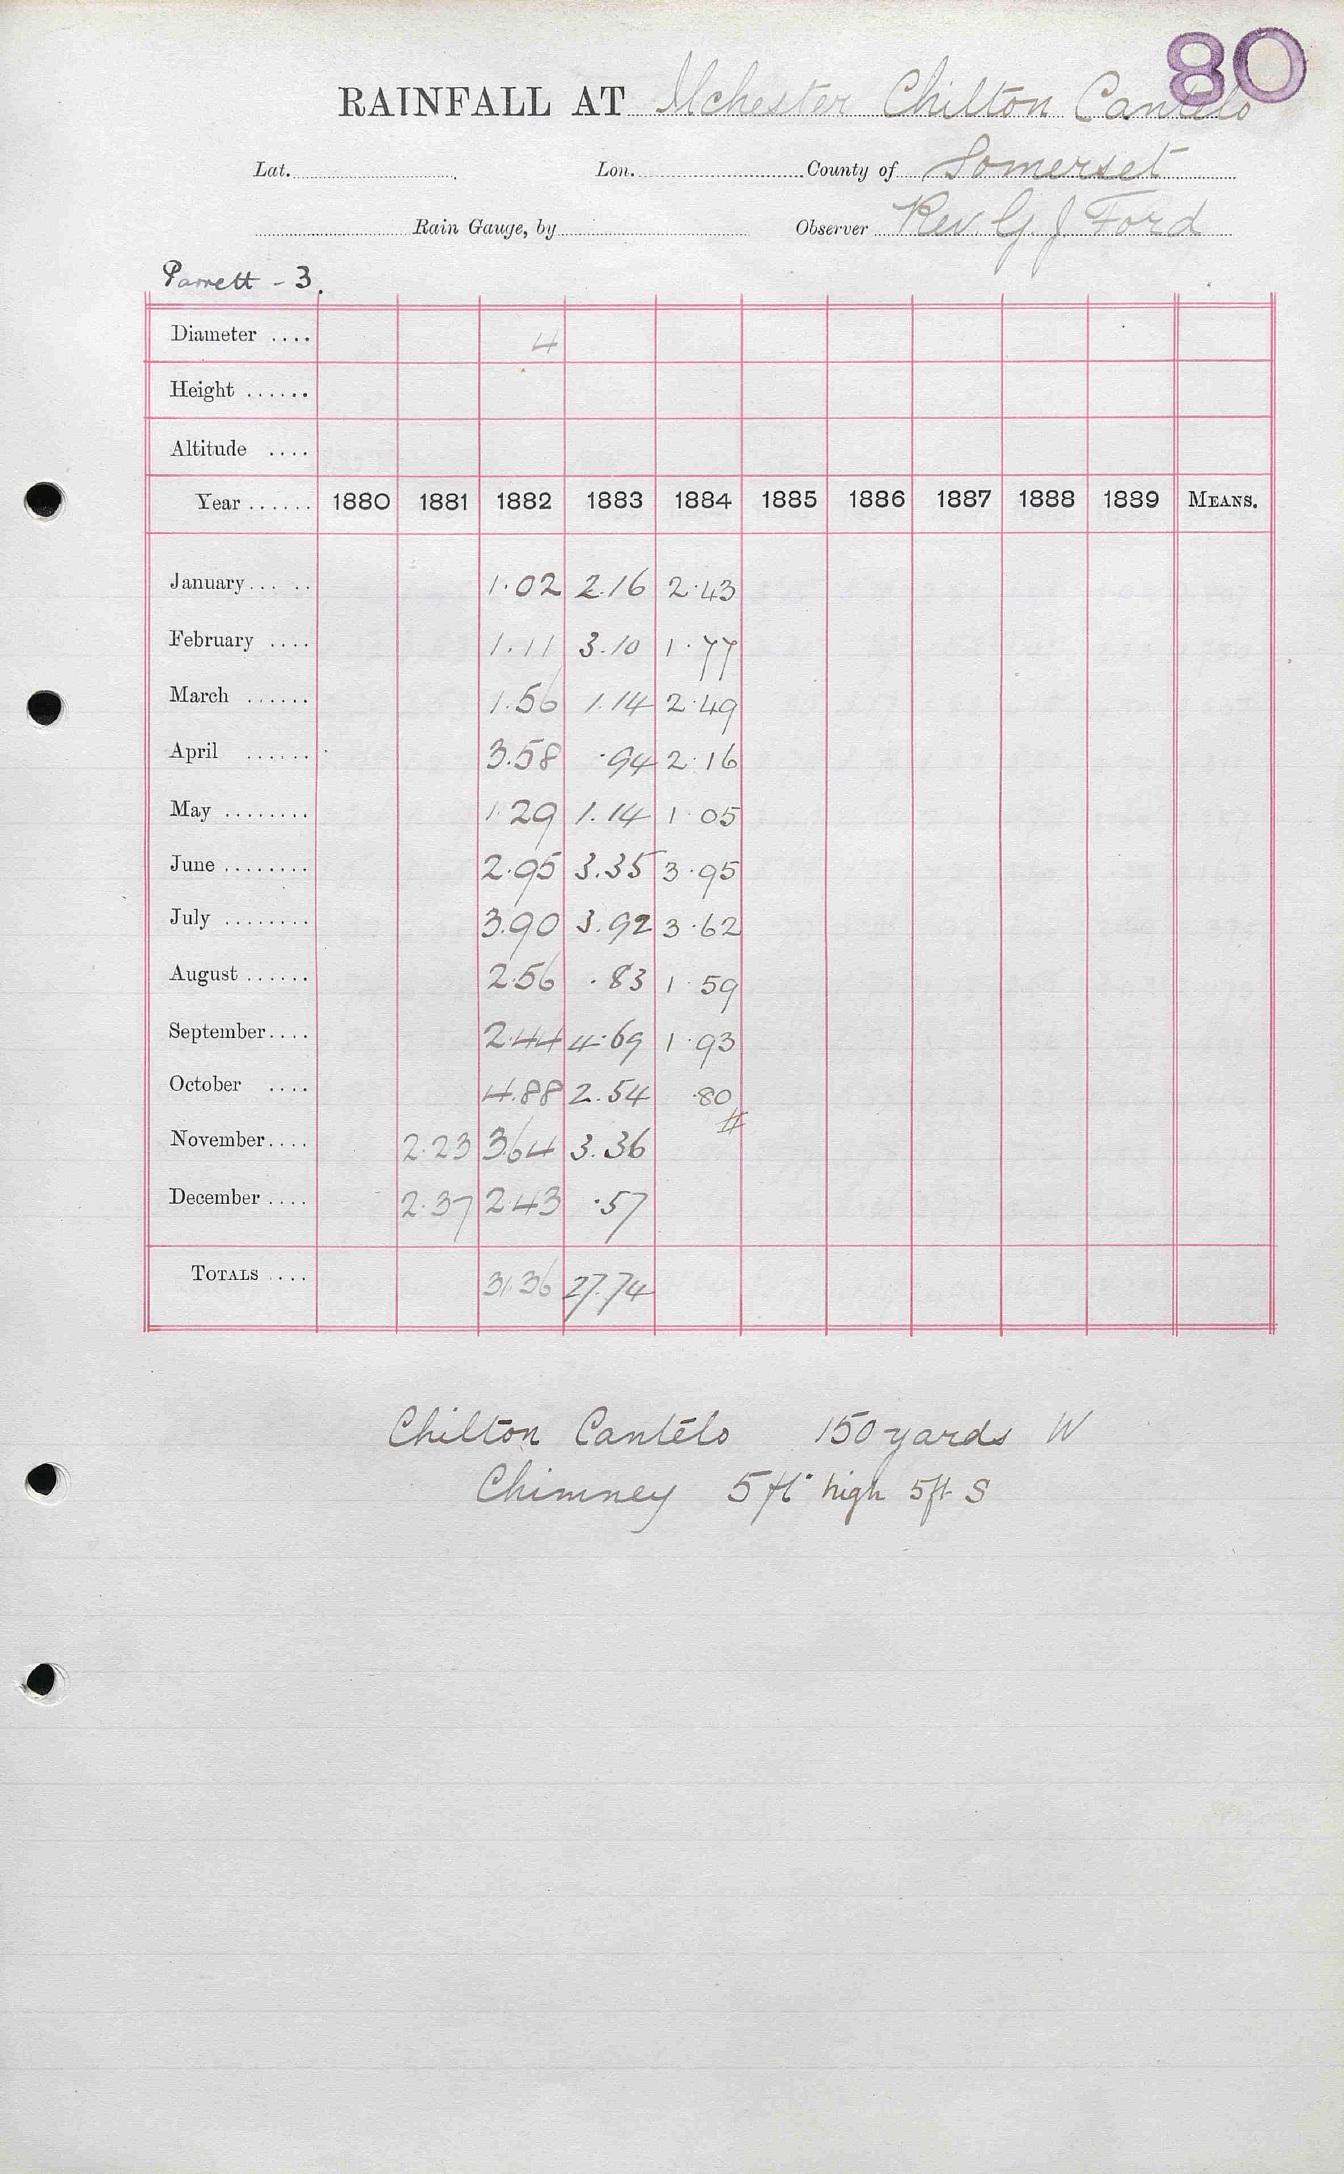 80
RAINFALL AT Ilchester Chilton Cantelo
Lat. Lon. County of Somerset
Rain Gauge, by Observer Rev G J Ford
Parrett - 3.
Diameter .... 4
Height ......
Altitude ....
Year ...... 1880 1881 1882 1883 1884 1885 1886 1887 1888 1889 MEANS.
January ... .. 1.02 2.16 2.43
February .... 1.11 3.10 1.77
March ...... 1.56 1.14 2.49
April ...... 3.58 .94 2.16
May ........ 1.29 1.14 1.05
June ........ 2.95 3.35 3.95
July ........ 3.90 3.92 3.62
August ...... 2.56 .83 1.59
September .... 2.44 4.69 1.93
October .... 4.88 2.54 .80
#
November .... 2.23 3.64 3.36
December .... 2.37 2.43 .57
TOTALS .... 31.36 27.74
Chilton Cantelo 150 yards W
Chimney 5 ft. high 5ft. S